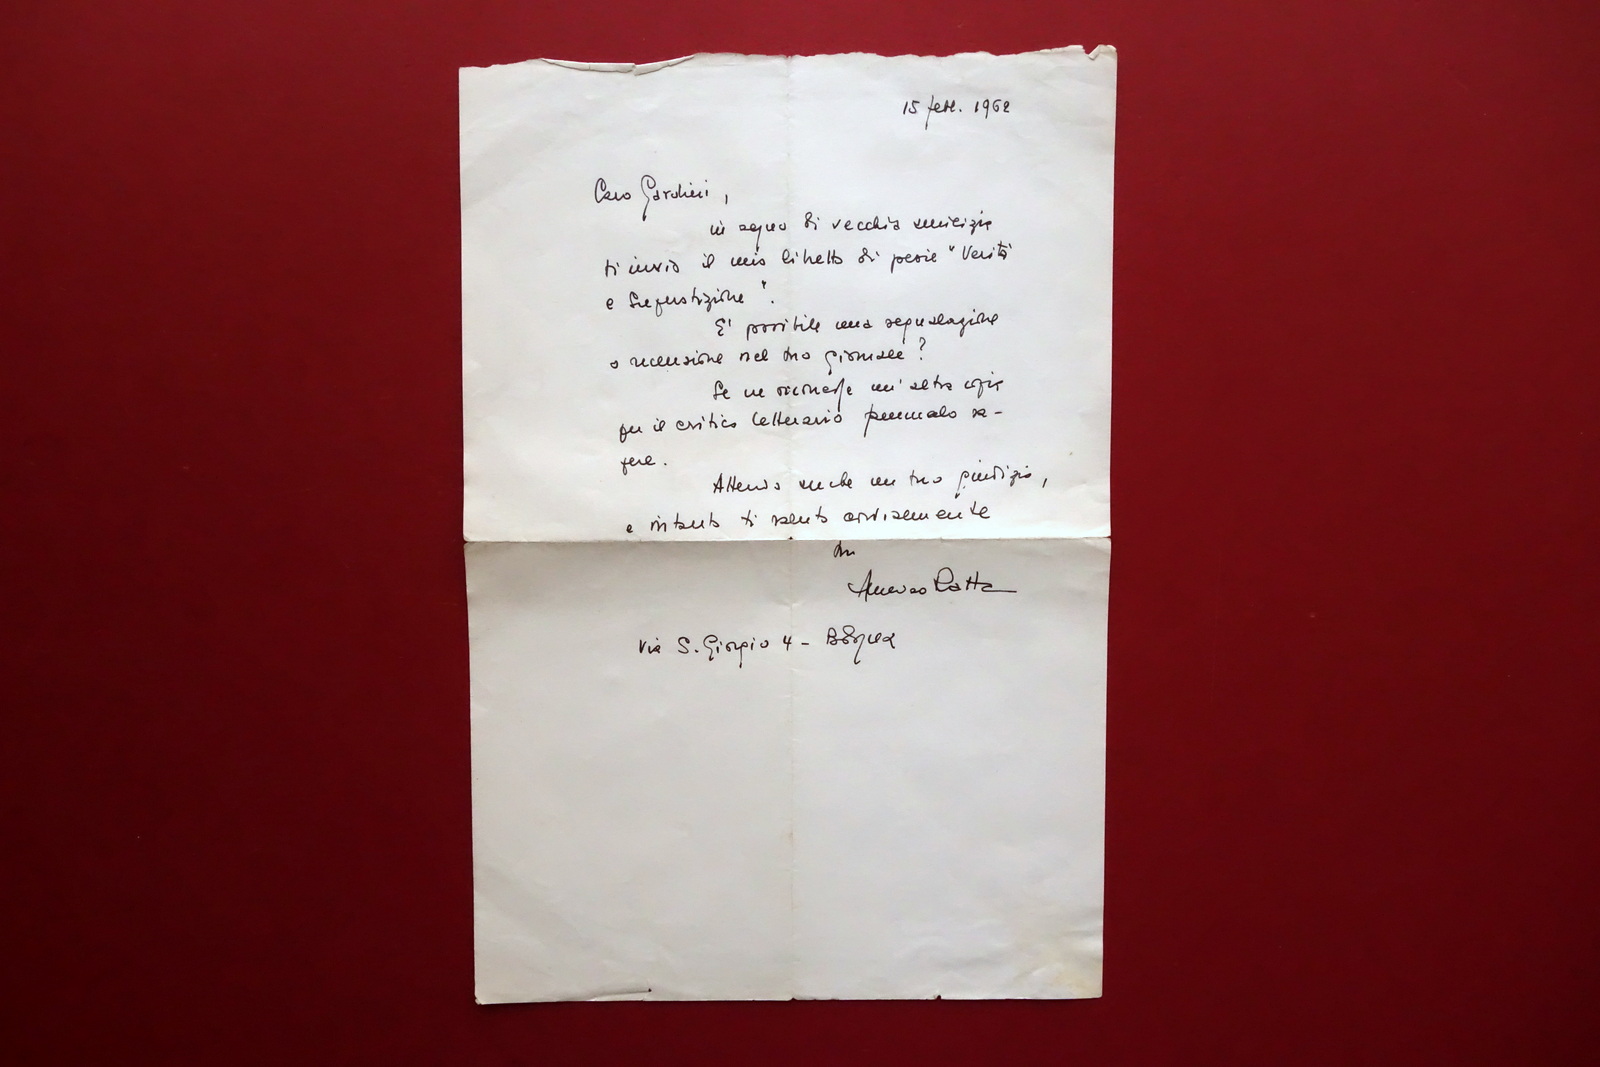 15 febb. 1962
Caro
in segno di vecchia amicizia
ti invio il mio libretto di poesie "Verità
e Superstizione".
E' possibile una segnalazione
o recensione nel tuo giornale?
Se ne occorresse un'altra copia
per il critico letterario fammelo sa-
pere.
Attendo anche un tuo giudizio,
e intanto ti saluto cordialmente
tuo
Amerigo Ratta
Via S. Giorgio 4 - Bologna